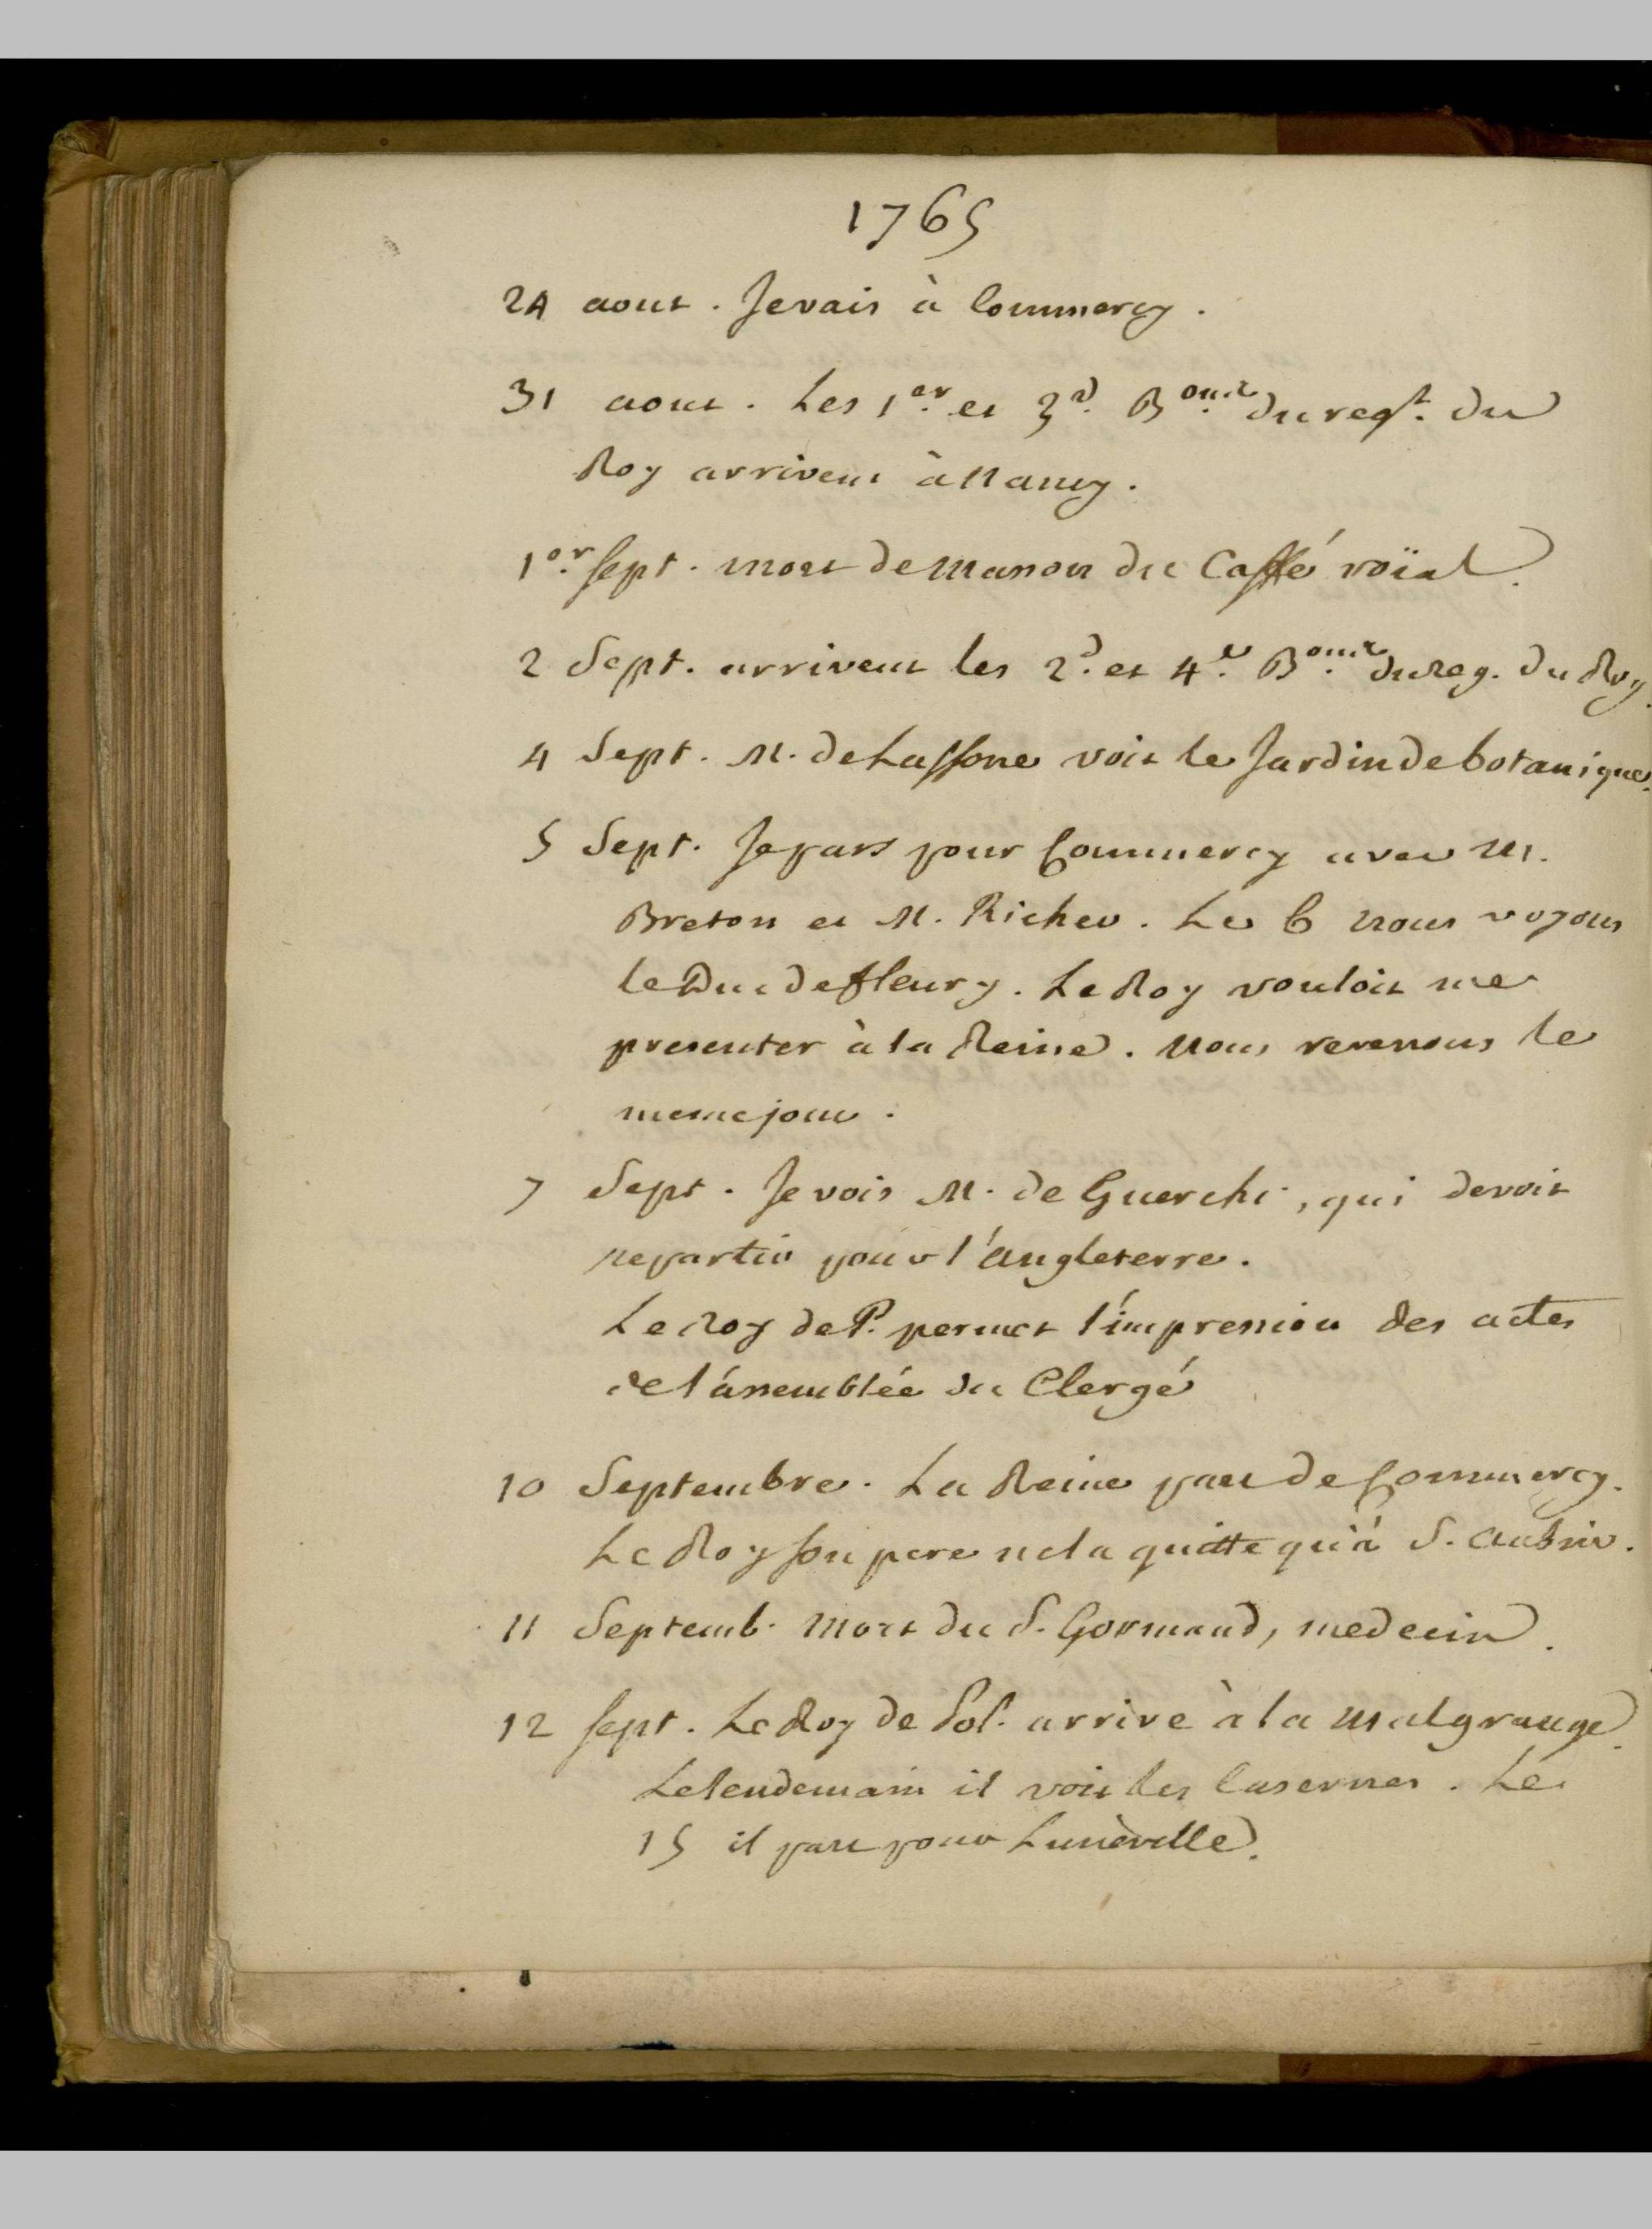 1765
24 aout. Je vais à Commercy.
31 aout. Les 1er. et 3d. Bons. du regt. du
Roy arrivent à Nancy.
1er. sept. mort de Manon du Caffé roïal.
2 Sept. arrivent les 2d. et 4e. Bons. du reg. du Roy.
4 Sept. M. de Lassone voit le Jardin de botanique.
5 Sept. Je pars pour Commercy avec M.
Breton et M. Richer. Le 6 nous voyons
le Duc de fleury. Le Roy vouloit me
presenter à la Reine. Nous revenons le
meme jour.
7 Sept. Je vois M. de Guerchi, qui devoit
repartir pour l'Angleterre.
Le roy de P. permet l'impression des actes
de l'assemblée du Clergé
10 Septembre. La Reine part de Commercy.
Le Roy son pere ne la quitte qu'à S. Aubin.
11 Septemb. Mort du S. Gormand, medecin.
12 sept. Le Roy de Pol. arrive à la Malgrange.
Le lendemain il voit les Casernes. Le
15 il part pour Lunéville.